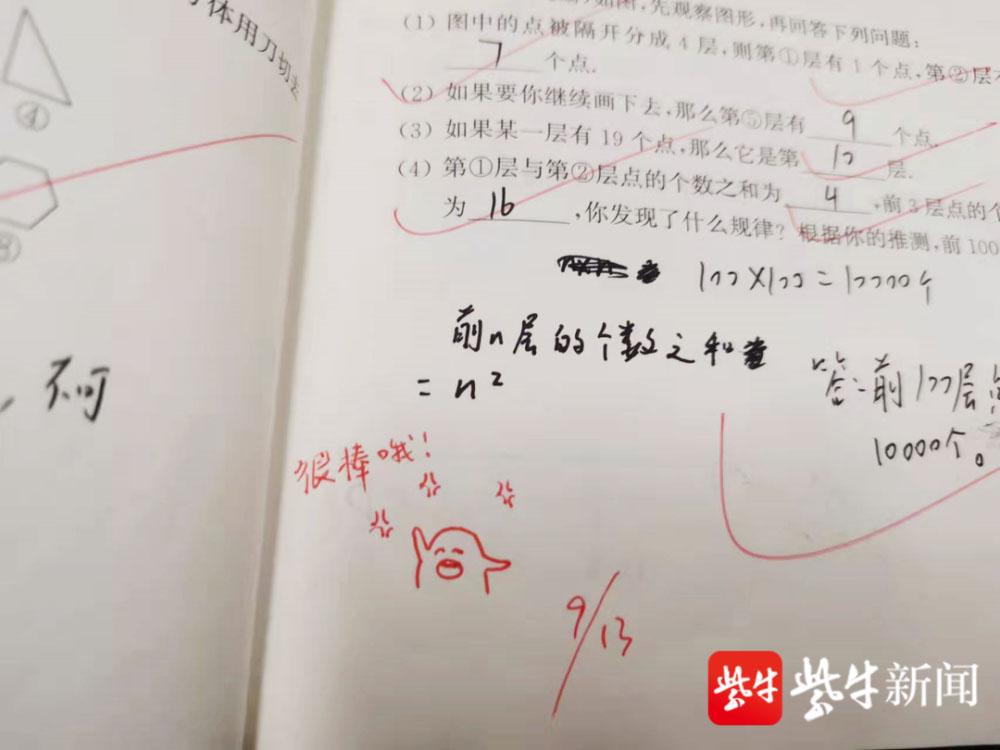 体用刀切去
④
③
不可
如图,先观察图形,再回答下列问题:
(1) 图中的点被隔开分成4层,则第①层有1个点,第②层
7 个点.
(2) 如果要你继续画下去,那么第⑤层有 9 个点.
(3) 如果某一层有19个点,那么它是第 10 层.
(4) 第①层与第②层点的个数之和为 4 ,前3层点的个
为 16 ,你发现了什么规律? 根据你的推测,前100
100×100=10000个
前n层的个数之和
= n²
答:前100层
10000个。
很棒哦!
9/13
紫牛 紫牛新闻